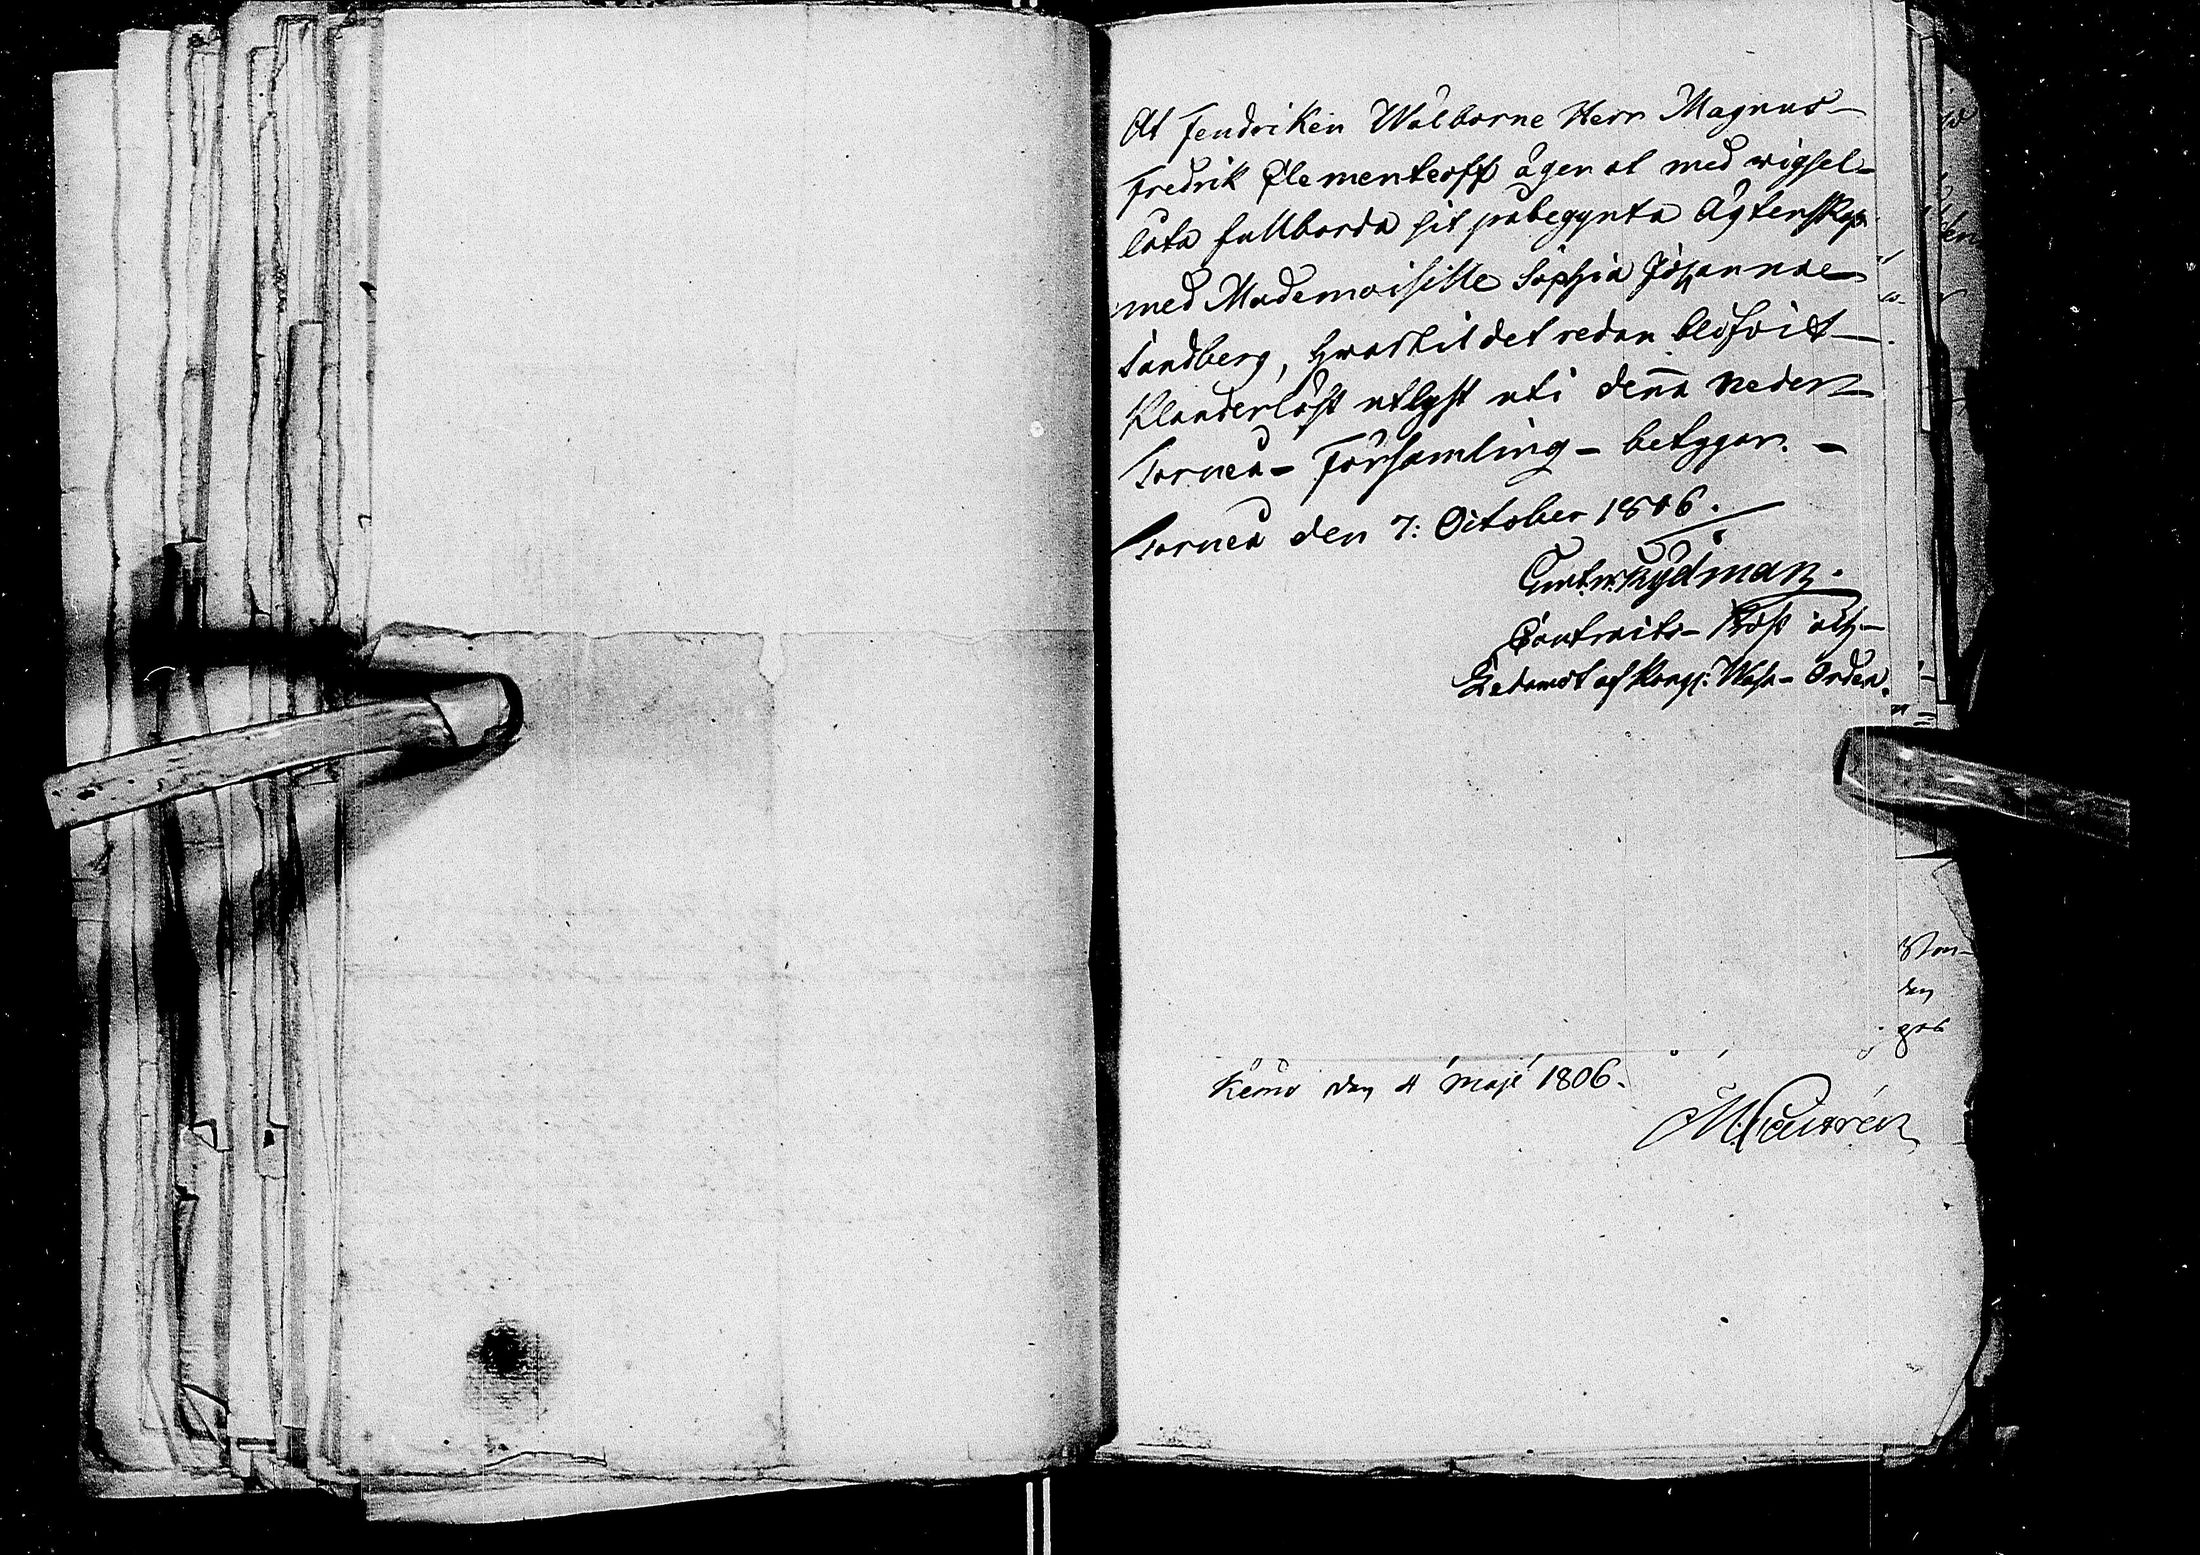 At Fendriken Wälborne Herr Magnus
Fredrik Clementeoff äger at med wigsel
låta fullborda sit påbegynta Ägtenskap
med Mademoiselle Sophia Johanna
Sandberg, hwartil det redan blifvit
Klanderlöst utlyst uti denna Neder
Torneå Församling betygar.
Torneå den 7: October 1806.
Rydman.
Contracts-Prost och
Ledamot af Kongl: Wasa-Orden.
den
Kemo den 4 Maji 1806.